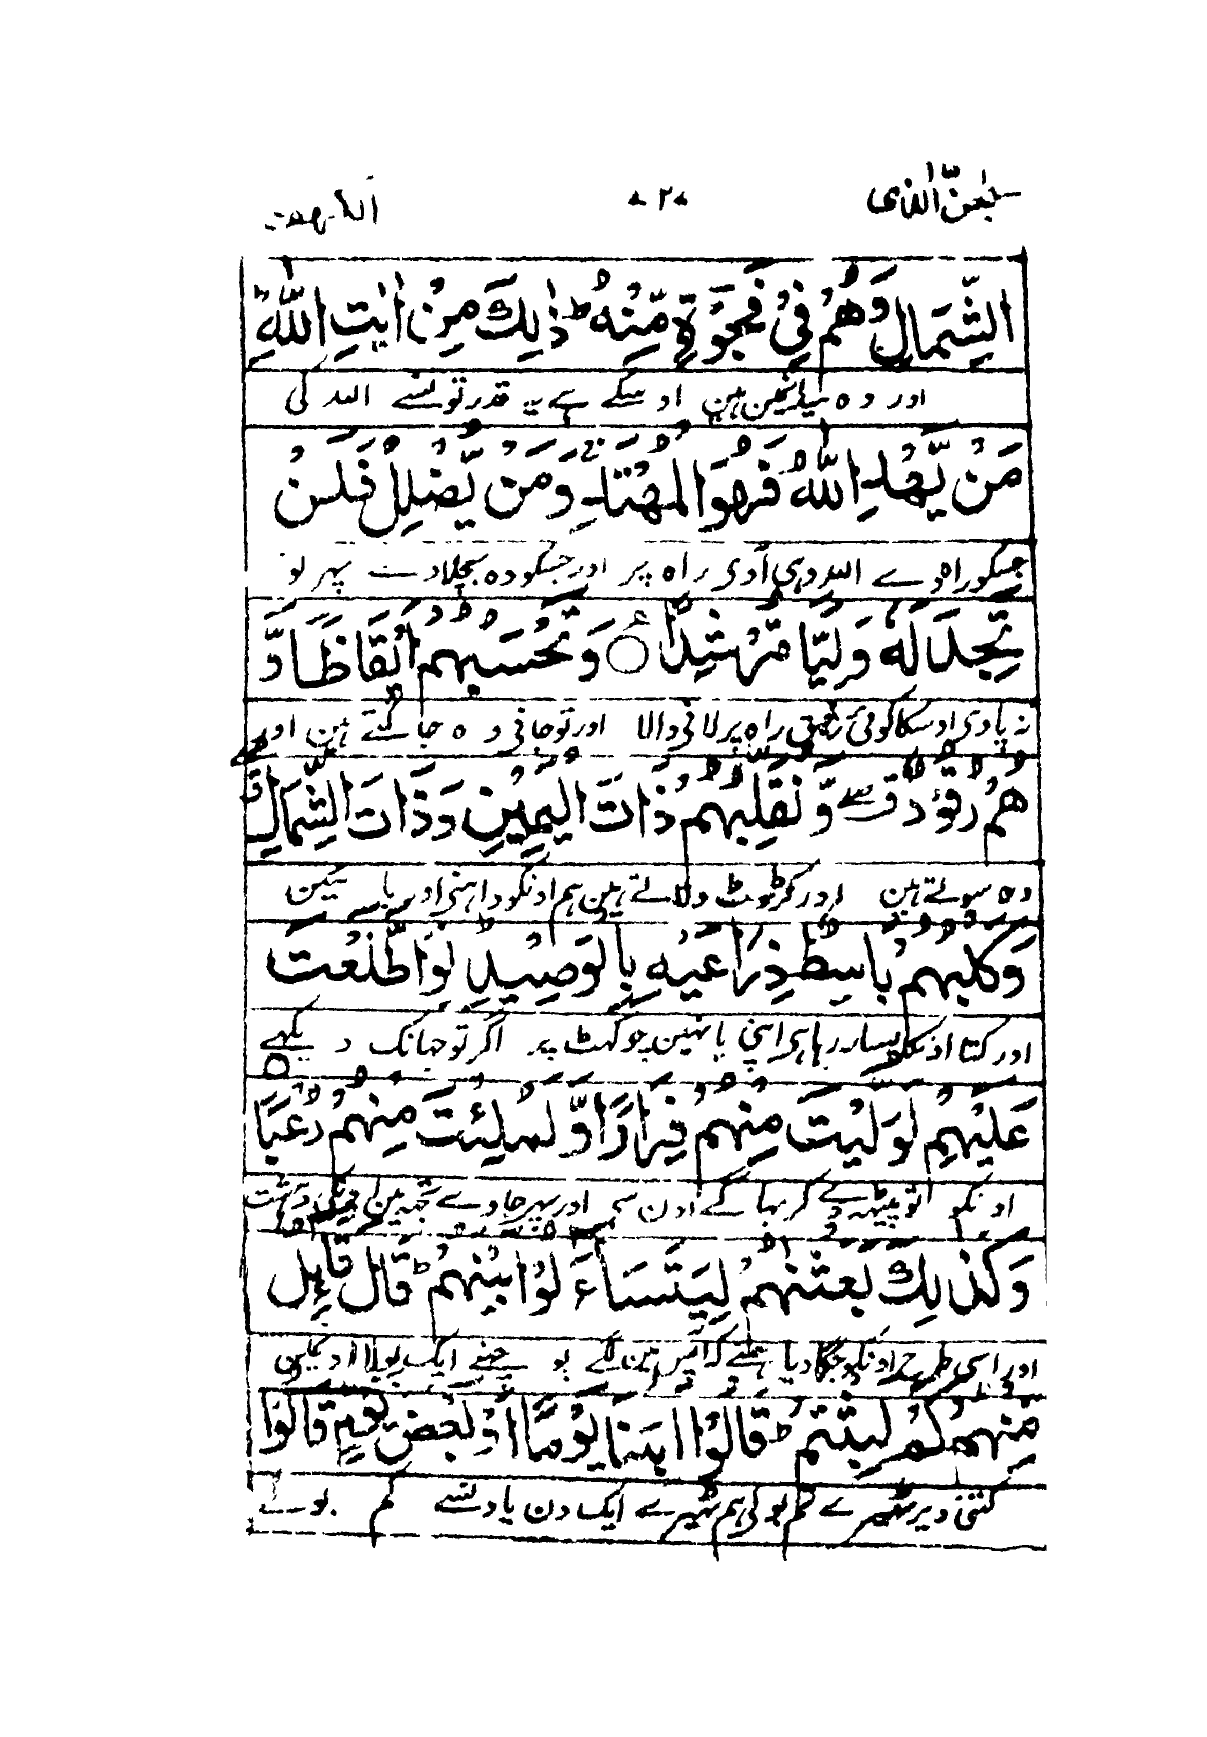 سبحٰن الّذی ۲ الکهف
الشِّمَالِ وَهُمْ فِیْ فَجْوَةٍ مِّنْهُ ؕ ذٰلِكَ مِنْ اٰیٰتِ اللّٰهِ ؕ
اور وہ میدانمین ہین اوسکے ہے یہ قدرتونسے اللہ کی
مَنْ یَّهْدِ اللّٰهُ فَهُوَ الْمُهْتَدِ ۚ وَمَنْ یُّضْلِلْ فَلَنْ
جسکو راہ دے اللہ وہی آوی راہ پر اور جسکو وہ بچلادے پہر تو
تَجِدَ لَهٗ وَلِیًّا مُّرْشِدًا ۝ ع وَتَحْسَبُهُمْ اَیْقَاظًا وَّ
نہ پاوی اوسکا کوئی رفیق راہ پر لانی والا اور توجانی وہ جاگتے ہین اور
هُمْ رُقُوْدٌ ق صے وَّنُقَلِّبُهُمْ ذَاتَ الْیَمِیْنِ وَذَاتَ الشِّمَالِ ق
وہ سوتے ہین اور کروٹ دلاتے ہین ہم اونکو داہنی اور بائین
وَكَلْبُهُمْ بَاسِطٌ ذِرَاعَیْهِ بِالْوَصِیْدِ لَوِاطَّلَعْتَ
اور کتا اونکا پسار رہا ہی اپنی بانہین چوکہٹ پر اگر توجہانک دیکہے
عَلَیْهِمْ لَوَلَّیْتَ مِنْهُمْ فِرَارًا وَّلَمُلِئْتَ مِنْهُمْ رُعْبًا ۝
اونکو تو پیٹہہ دے کر بہاگے اون سی اور بہرجاوے تجہہ مین اونکی دہشت
وَكَذٰلِكَ بَعَثْنٰهُمْ لِیَتَسَآءَلُوْا بَیْنَهُمْ ؕ قَالَ قَآئِلٌ
اور اسی طرح اونکو جگادیا ہمنے کہ آپس مین لگے پوچہنے ایک بولا اونمین
مِّنْهُمْ كَمْ لَبِثْتُمْ ؕ قَالُوْا لَبِثْنَا یَوْمًا اَوْ بَعْضَ یَوْمٍ قَالُوْا
کتنی دیر ٹہرے تم بولی ہم ٹہرے ایک دن یا دنسے کم بولے